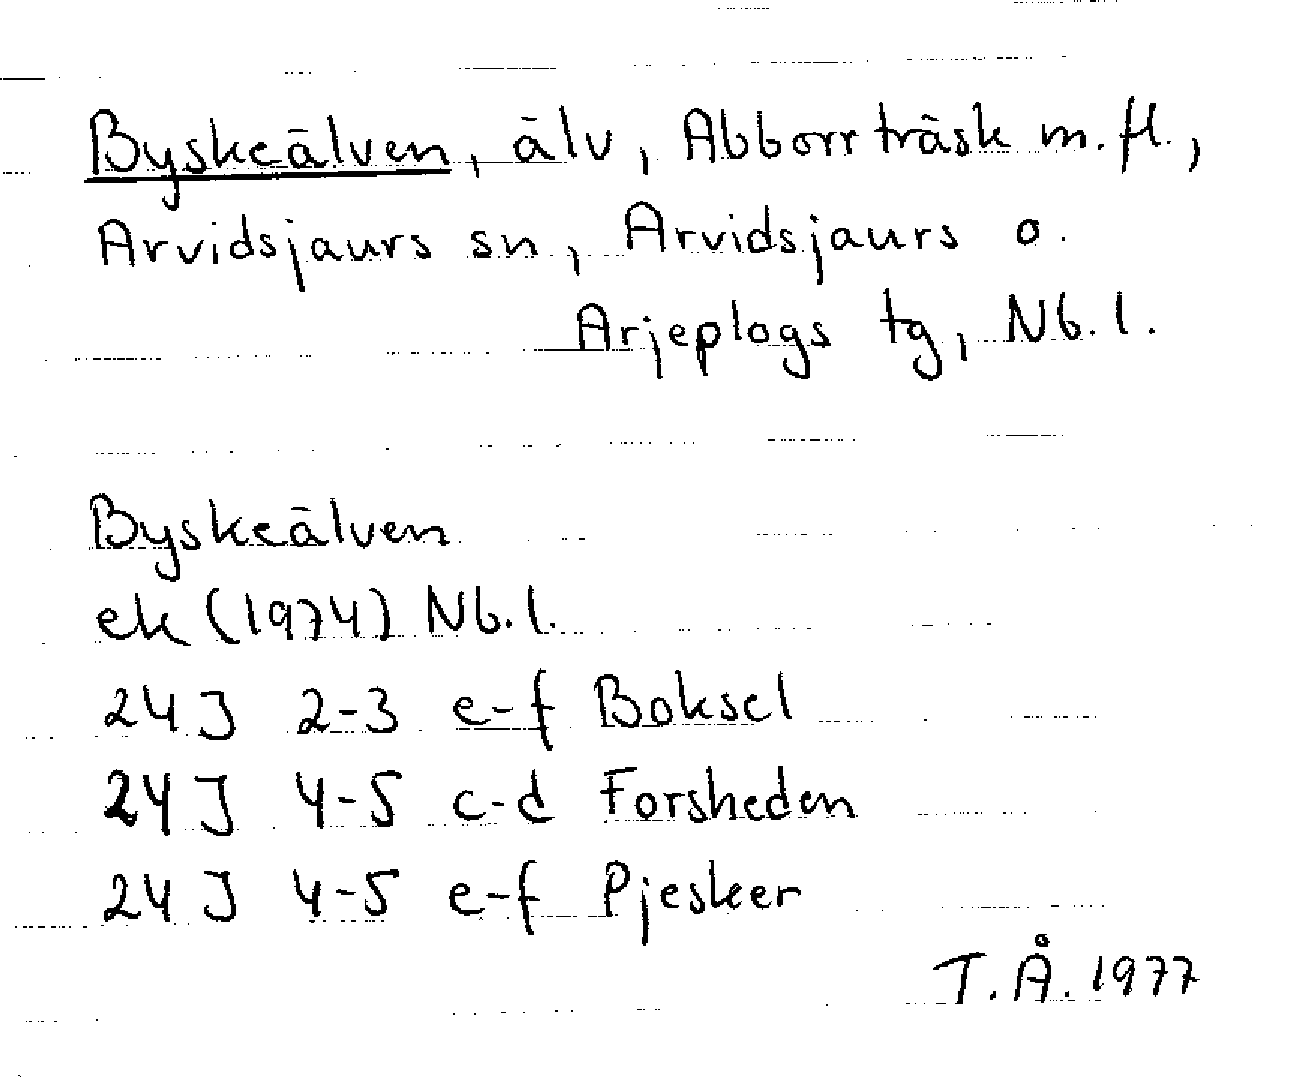 Byskeälven, älv, Abborrträsk m.fl.,
Arvidsjaurs sn, Arvidsjaurs o.
Arjeplogs tg, Nb.l.
Byskeälven
ek (1974) Nb.l.
24J 2-3 e-f Boksel
24J 4-5 c-d Forsheden
24J 4-5 e-f Pjesker
T.Å. 1977